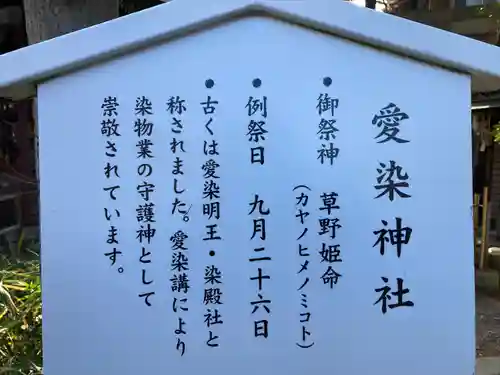 愛染神社
● 御祭神 草野姫命
(カヤノヒメノミコト)
● 例祭日 九月二十六日
● 古くは愛染明王・染殿社と
称されました。愛染講により
染物業の守護神として
崇敬されています。